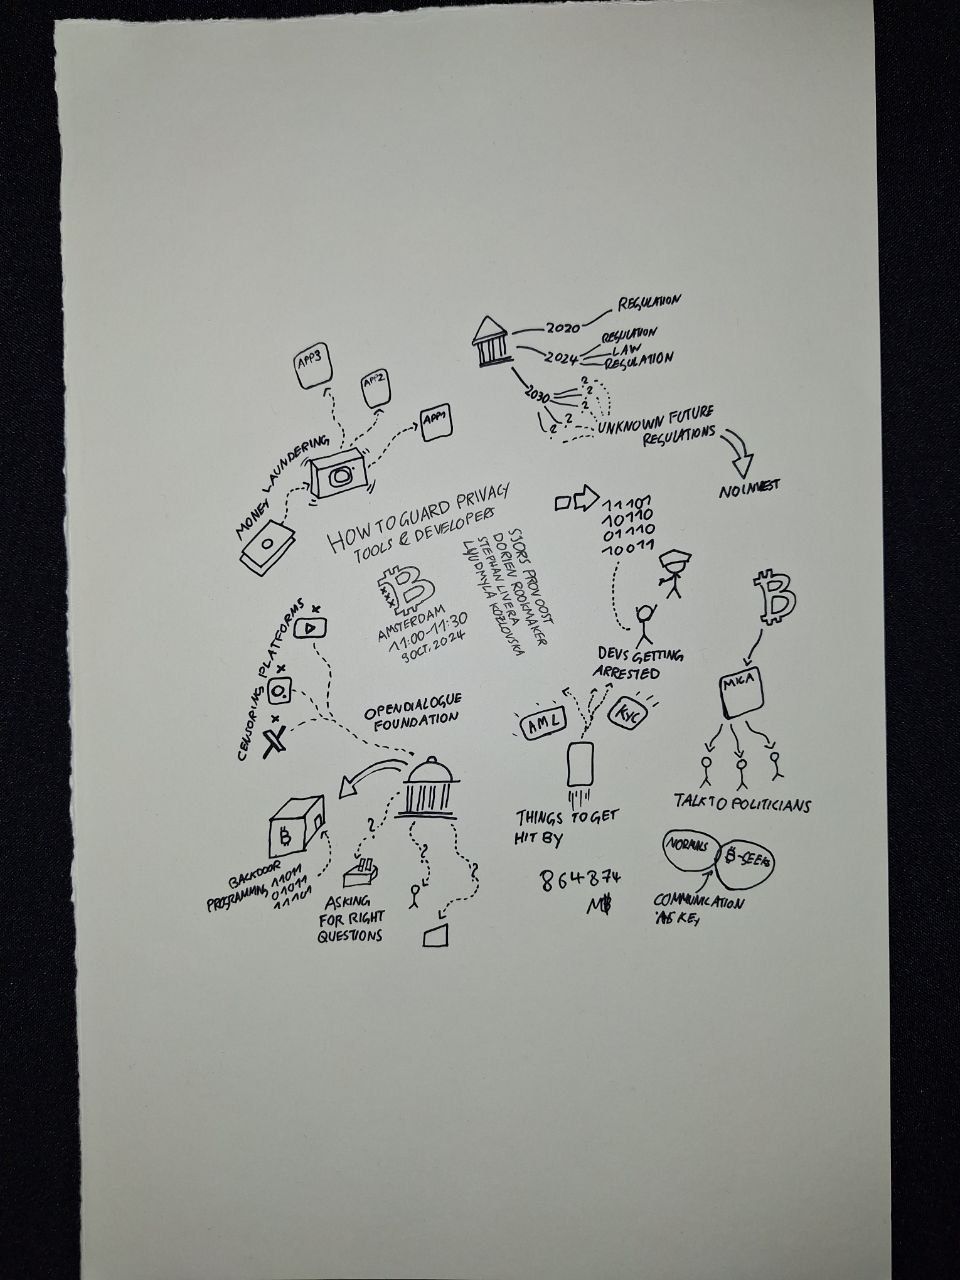 REGULATION
2020
REGULATION
2024
LAW
REGULATION
2030
? ? ? ? ?
UNKNOWN FUTURE
REGULATIONS
NO INVEST
APP3
APP2
APP1
MONEY LAUNDERING
HOW TO GUARD PRIVACY
TOOLS & DEVELOPERS
XXX
AMSTERDAM
11:00-11:30
9 OCT, 2024
SJORS PROVOOST
DORIEN ROOKMAKER
STEPHAN LIVERA
LYUDMYLA KOZLOVSKA
11101
10110
01110
10011
DEVS GETTING
ARRESTED
CENSORING PLATFORMS
X
OPEN DIALOGUE
FOUNDATION
BACKDOOR
PROGRAMMING 11011
01011
11101
?
?
?
ASKING
FOR RIGHT
QUESTIONS
AML
KYC
THINGS TO GET
HIT BY
MICA
TALK TO POLITICIANS
NORMALS
₿-SEEKS
COMMUNICATION
AS KEY
864874